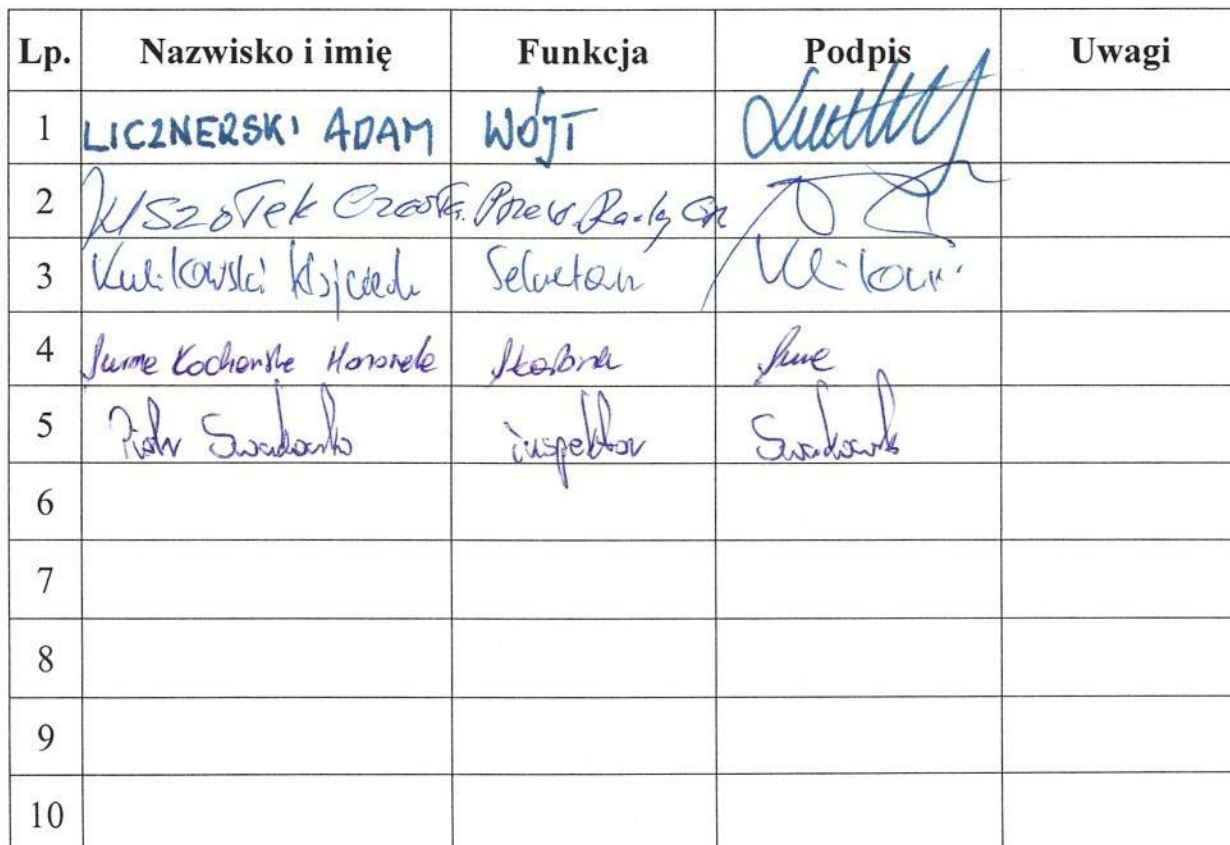 Lp. Nazwisko i imię Funkcja Podpis Uwagi
1 LICZNERSKI ADAM WÓJT
2 Wszołek Czesła. Przew. Rady Gm
3 Kulikowski Wojciech Sekretarz
4 Kochańska Honorata Skarbnik
5 Piotr Swadowski inspektor
6
7
8
9
10